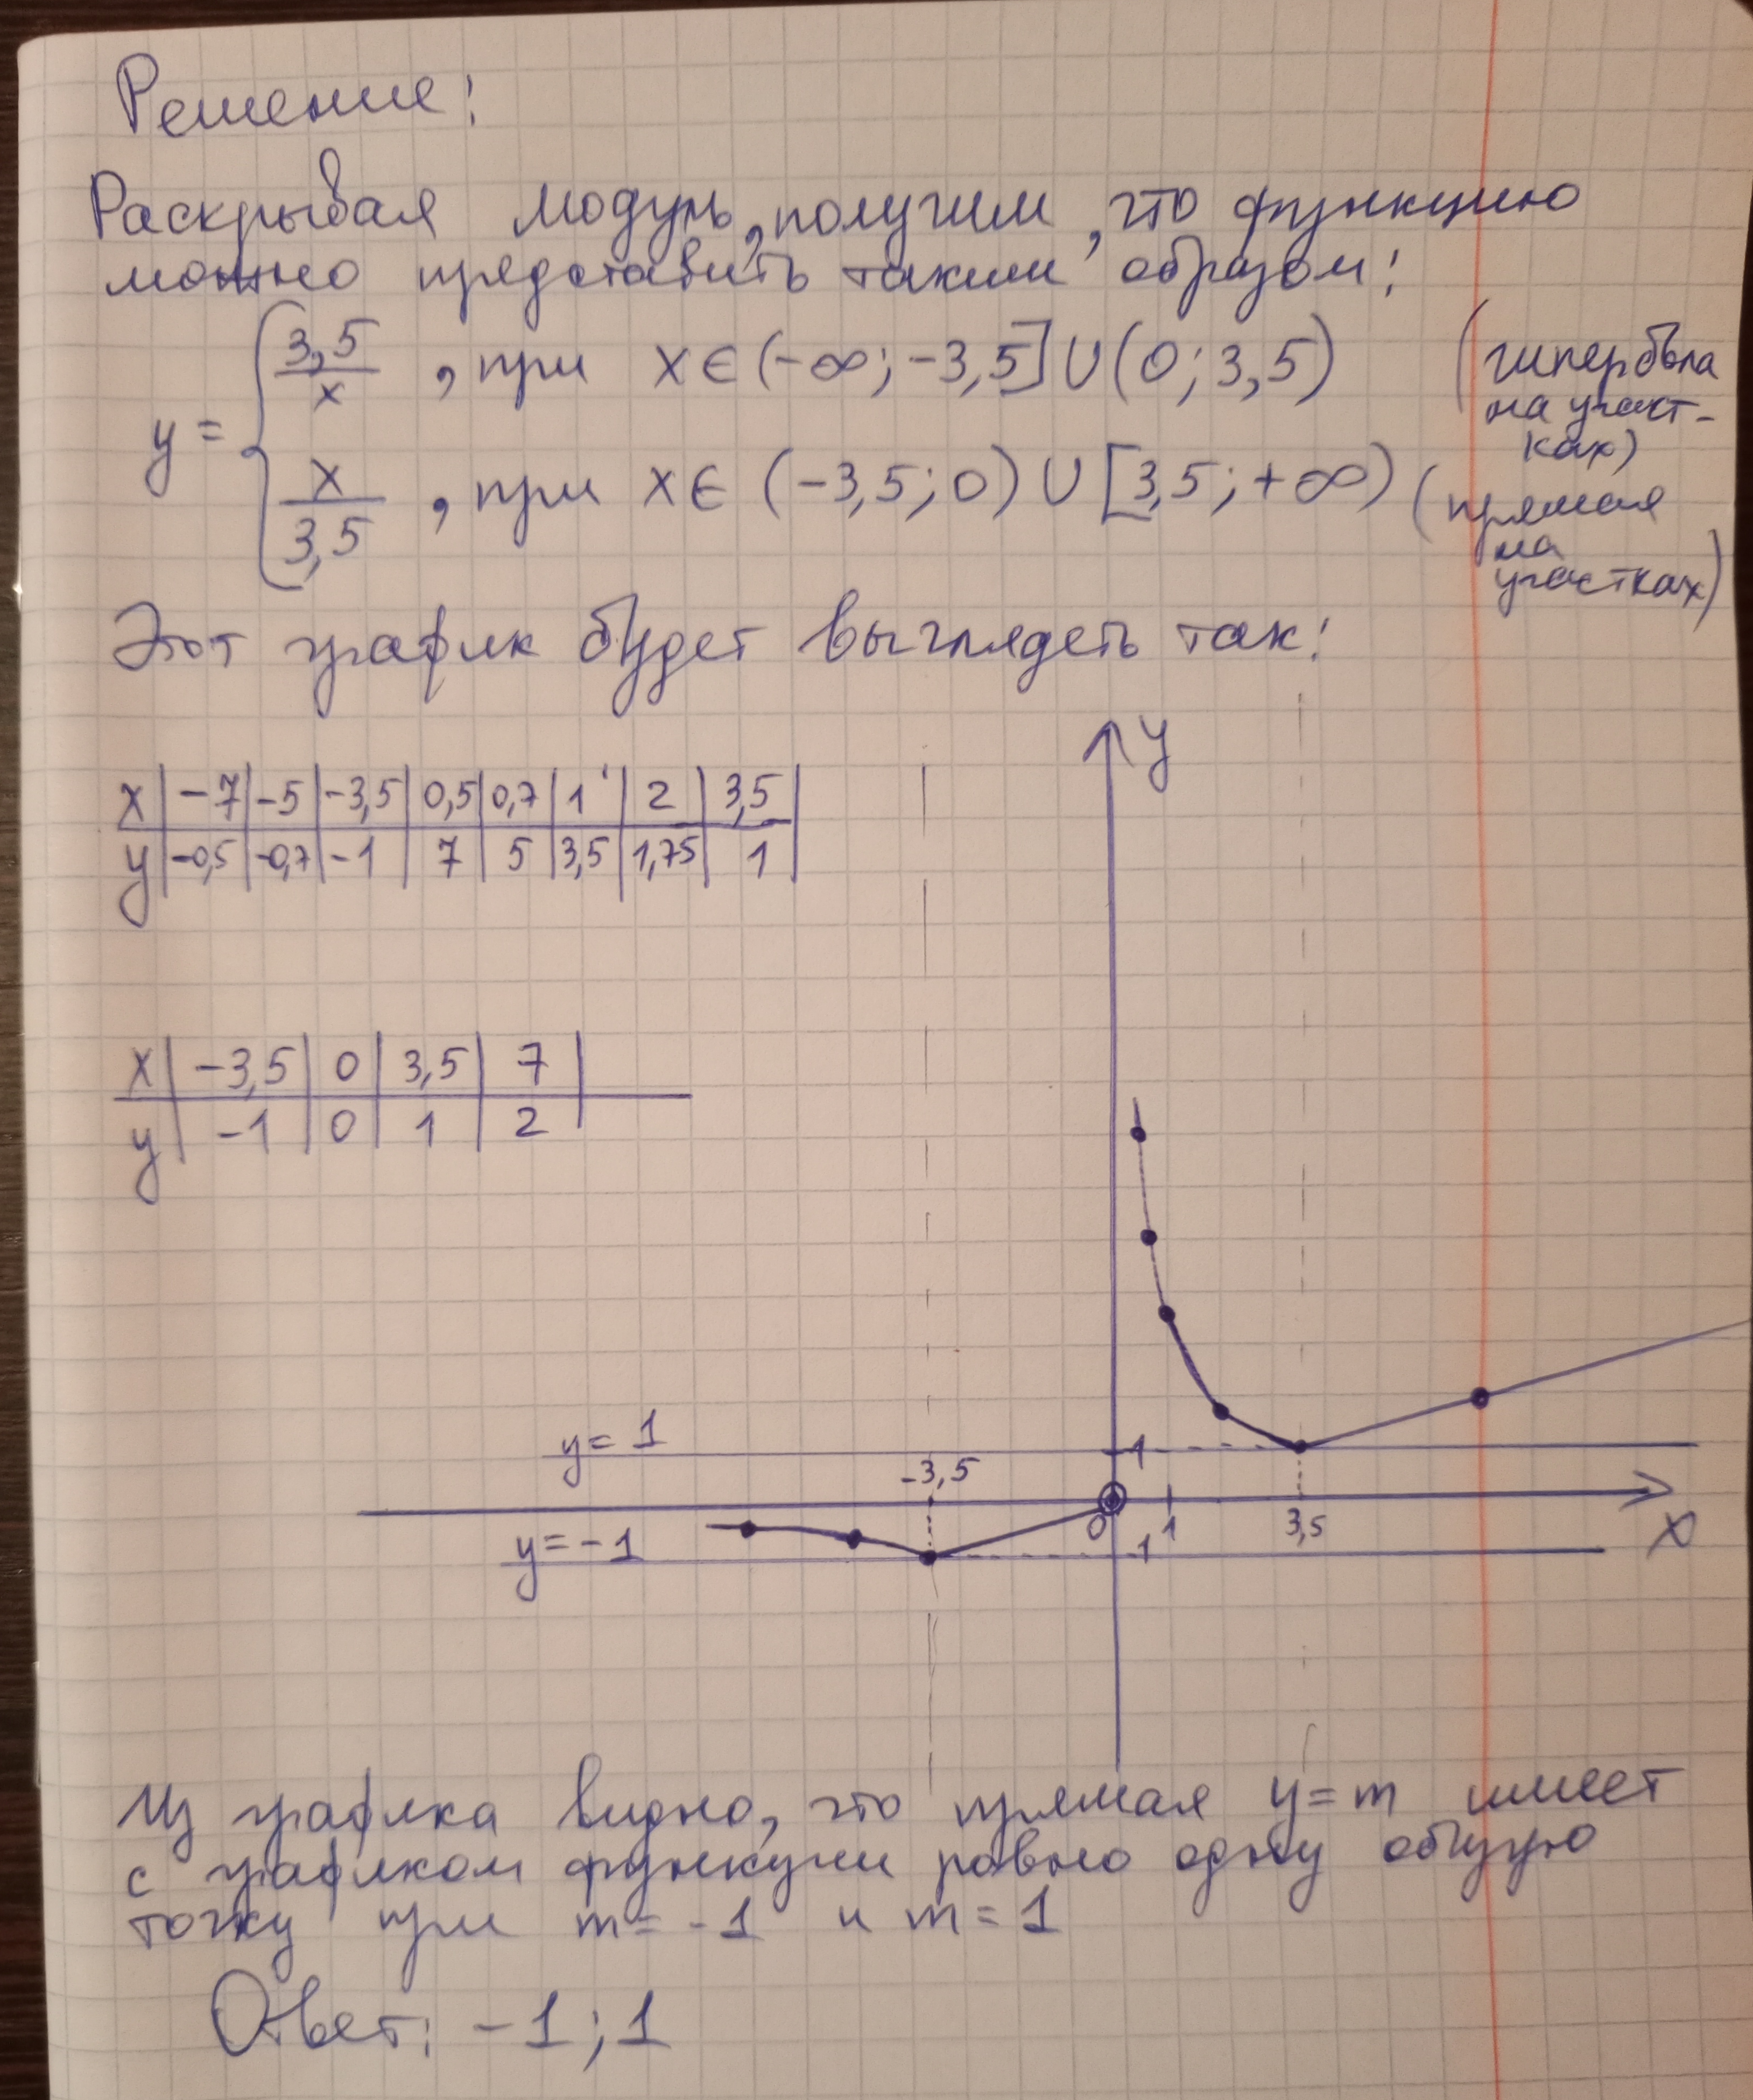 Решение:
Раскрывая модуль, получим, что функцию
можно представить таким образом:
y = { 3,5/x , при x ∈ (-∞; -3,5] ∪ (0; 3,5) (гипербола на участках)
x/3,5 , при x ∈ (-3,5; 0) ∪ [3,5; +∞) (прямая на участках)
Этот график будет выглядеть так:
x | -7 | -5 | -3,5 | 0,5 | 0,7 | 1 | 2 | 3,5
y | -0,5 | -0,7 | -1 | 7 | 5 | 3,5 | 1,75 | 1
x | -3,5 | 0 | 3,5 | 7
y | -1 | 0 | 1 | 2
y
y = 1
1
-3,5
0
1
3,5
x
y = -1
1
Из графика видно, что прямая y = m имеет
с графиком функции ровно одну общую
точку при m = -1 и m = 1
Ответ: -1; 1